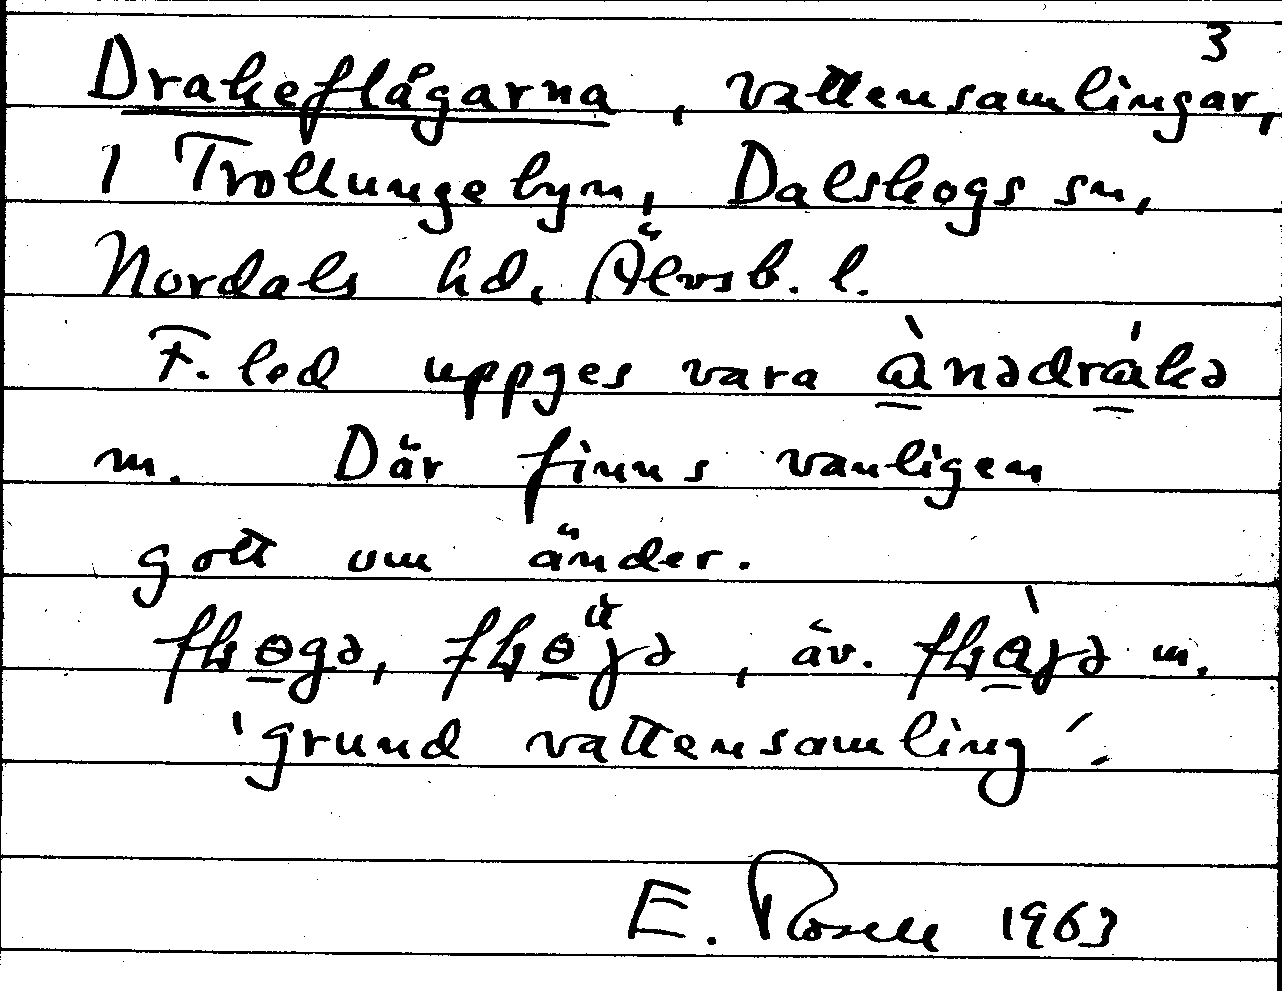 3
Drakeflågarna, vattensamlingar,
i Trollungebyn, Dalskogs sn,
Nordals hd, Älvsb. l.
F. led uppges vara ànədrákə
m. Där finns vanligen
gott om änder.
 , äv. m.
'grund vattensamling'.
E. Rosell 1963